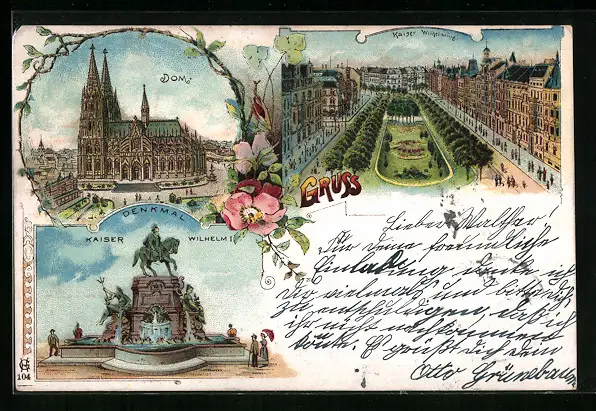 DOM
Kaiser Wilhelmring
GRUSS
DENKMAL
KAISER WILHELM I
104
Lieber Walther!
Für deine freundliche
Einladung danke ich
dir vielmals und bitte dich
zu entschuldigen, daß ich
ihr nicht nachkommen
konnte. Es grüßt dich dein
Otto Grünebaum